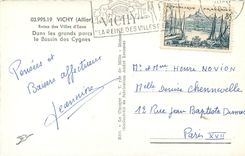 03.995.19 VICHY (Allier)
Reine des Villes d'Eaux
Dans les grands parcs
le Bassin des Cygnes
VICHY
LA REINE DES VILLES D'
Pensées et
Baisers affectueux
Jeannine
Mr & Mme Henri NOVION
Melle Denise Chennevelle
12 Rue Jean Baptiste Dumas
Paris XVII